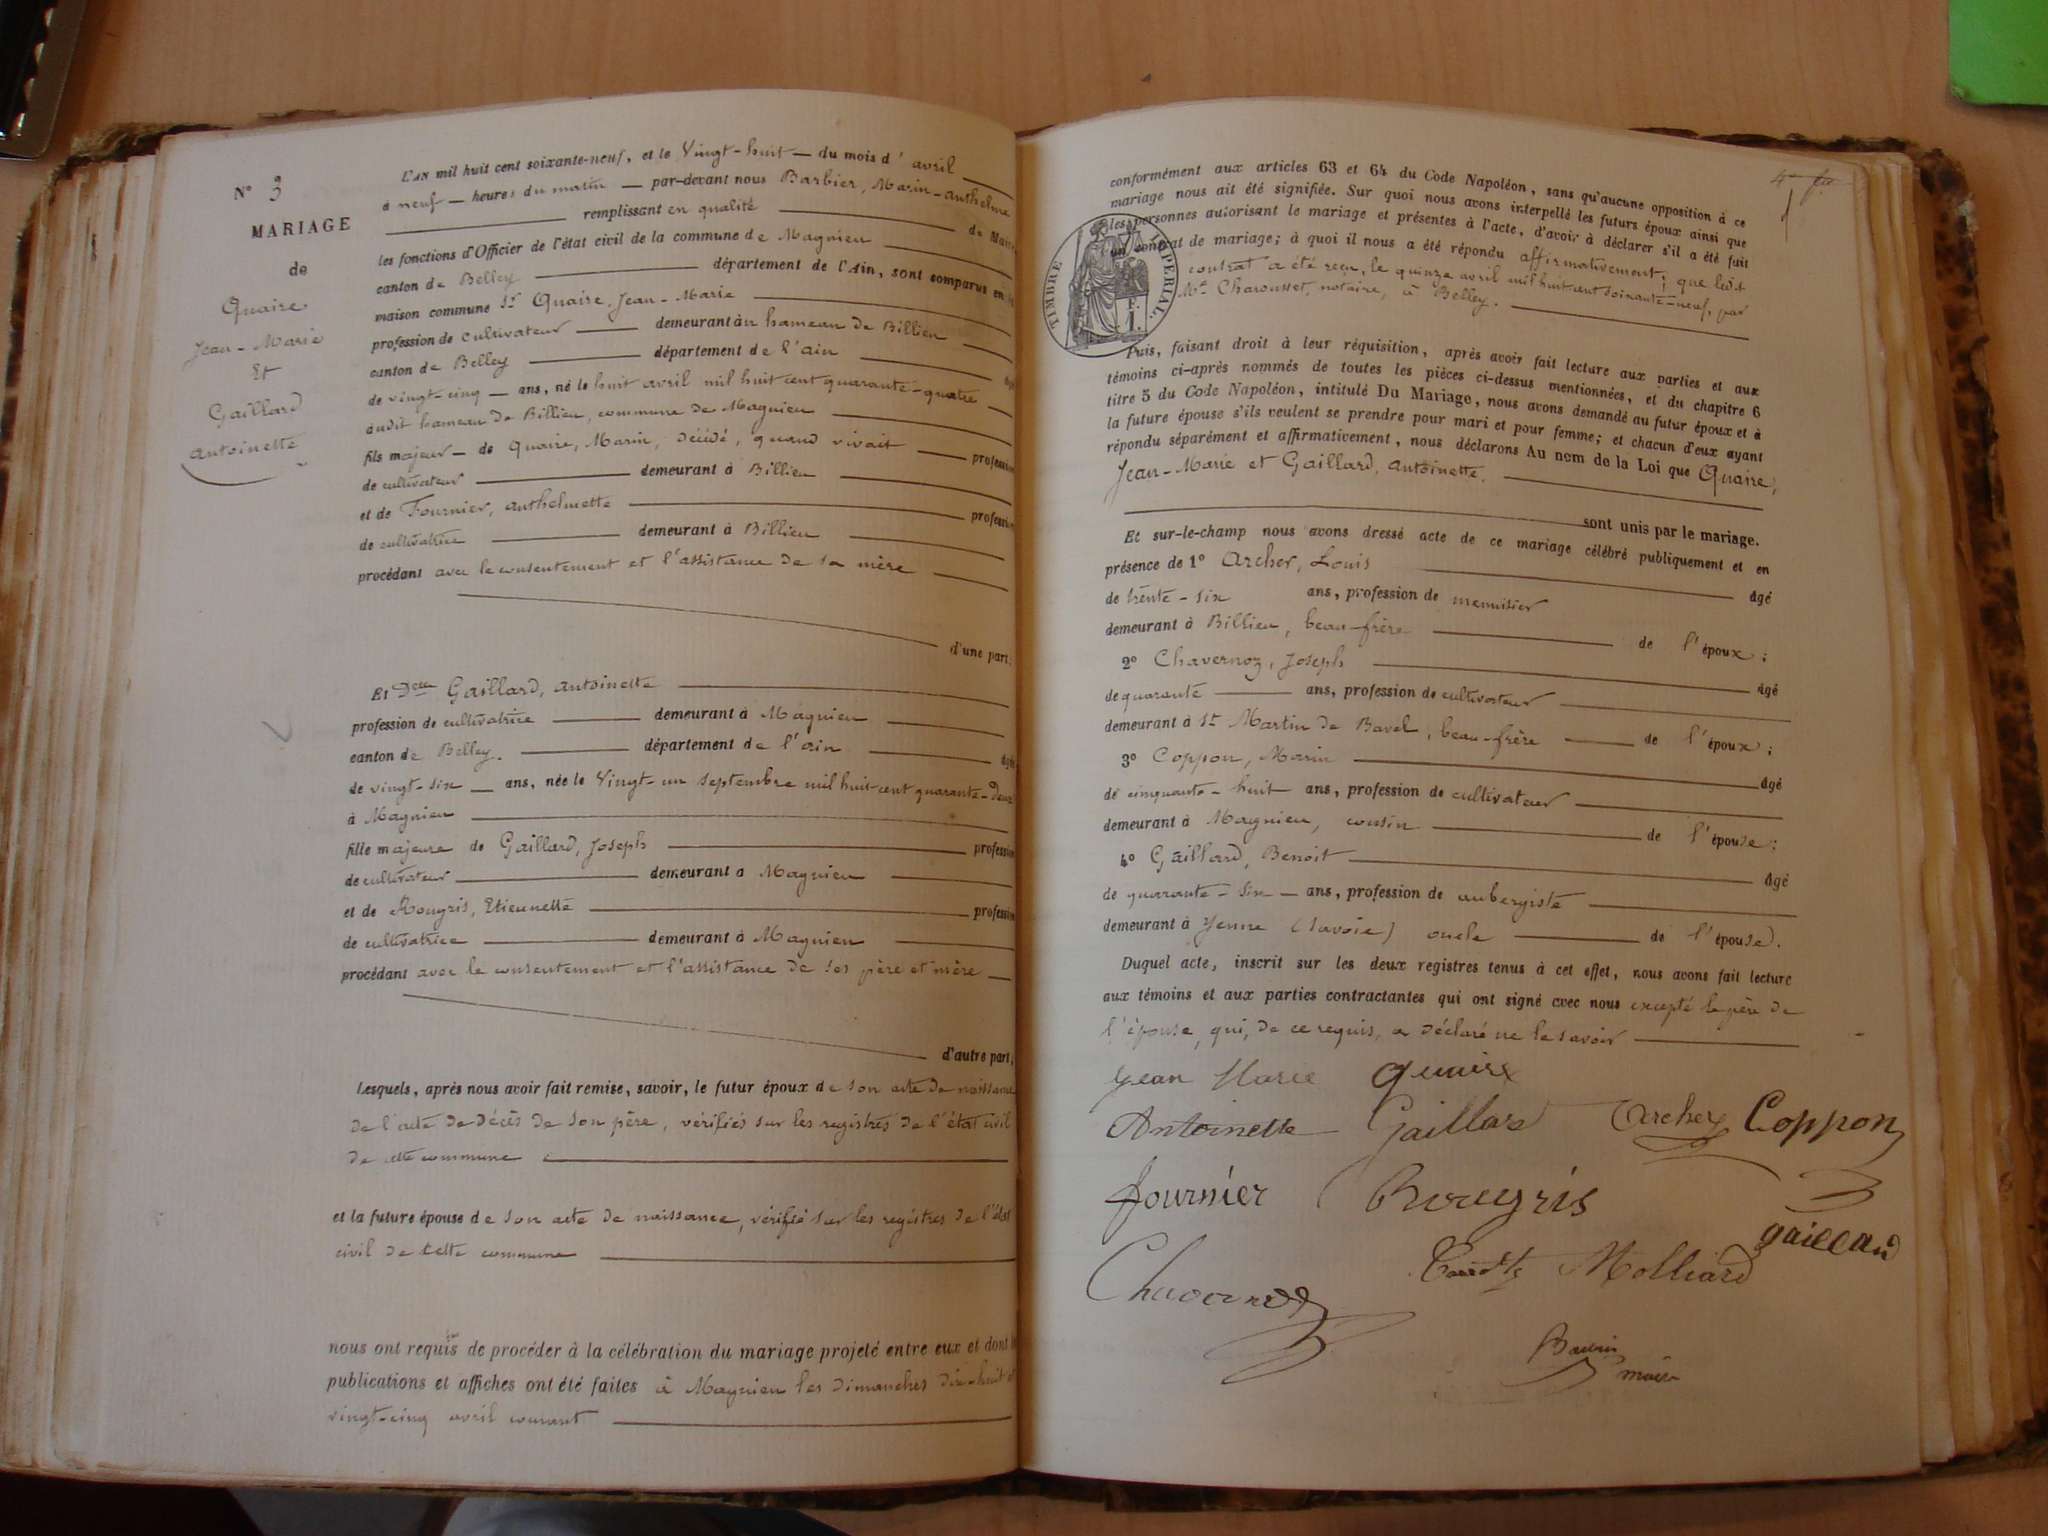 N° 3
MARIAGE
de
Quaire
Jean-Marie
Et
Gaillard
antoinette
L'AN mil huit cent soixante-neuf, et le Vingt-huit du mois d'avril
à neuf heures du matin par-devant nous Barbier, Marin-anthelme
remplissant en qualité de Maire
les fonctions d'Officier de l'état civil de la commune de Magnieu
canton de Belley département de l'Ain, sont comparus en la
maison commune Sr Quaire, Jean-Marie
profession de cultivateur demeurant au hameau de Billieu
canton de Belley département de l'ain âgé
de vingt-cinq ans, né le huit avril mil huit cent quarante-quatre
audit hameau de Billieu, commune de Magnieu
fils majeur de Quaire, Marin, décédé, quand vivait profession
de cultivateur demeurant à Billieu
et de Fournier, anthelmette profession
de cultivatrice demeurant à Billieu
procédant avec le consentement et l'assistance de sa mère
d'une part;
Et Delle Gaillard, antoinette
profession de cultivatrice demeurant à Magnieu
canton de Belley. département de l'ain âgée
de vingt-six ans, née le Vingt-un septembre mil huit cent quarante-deux
à Magnieu
fille majeure de Gaillard, Joseph profession
de cultivateur demeurant à Magnieu
et de Rougris, Etiennette profession
de cultivatrice demeurant à Magnieu
procédant avec le consentement et l'assistance de ses père et mère
d'autre part;
Lesquels, après nous avoir fait remise, savoir, le futur époux de son acte de naissance
de l'acte de décès de son père, vérifiés sur les registres de l'état civil
de cette commune
et la future épouse de son acte de naissance, vérifié sur les registres de l'état
civil de cette commune
nous ont requis de procéder à la célébration du mariage projeté entre eux et dont les
publications et affiches ont été faites à Magnieu les dimanches dix-huit et
vingt-cinq avril courant
conformément aux articles 63 et 64 du Code Napoléon, sans qu'aucune opposition à ce
mariage nous ait été signifiée. Sur quoi nous avons interpellé les futurs époux ainsi que
les personnes autorisant le mariage et présentes à l'acte, d'avoir à déclarer s'il a été fait
un contrat de mariage; à quoi il nous a été répondu affirmativement; que ledit
contrat a été reçu, le quinze avril mil huit cent soixante-neuf, par
Me Charousset, notaire, à Belley.
TIMBRE IMPERIAL.
1 F.
Puis, faisant droit à leur réquisition, après avoir fait lecture aux parties et aux
témoins ci-après nommés de toutes les pièces ci-dessus mentionnées, et du chapitre 6
titre 5 du Code Napoléon, intitulé Du Mariage, nous avons demandé au futur époux et à
la future épouse s'ils veulent se prendre pour mari et pour femme; et chacun d'eux ayant
répondu séparément et affirmativement, nous déclarons Au nom de la Loi que Quaire,
Jean-Marie et Gaillard, antoinette.
sont unis par le mariage.
Et sur-le-champ nous avons dressé acte de ce mariage célébré publiquement et en
présence de 1° Archer, Louis âgé
de trente-six ans, profession de menuisier
demeurant à Billieu, beau-frère de l'époux;
2° Chavernoz, Joseph âgé
de quarante ans, profession de cultivateur
demeurant à St Martin de Bavel, beau-frère de l'époux;
3° Coppon, Marin âgé
de cinquante-huit ans, profession de cultivateur
demeurant à Magnieu, cousin de l'épouse;
4° Gaillard, Benoit âgé
de quarante-six ans, profession de aubergiste
demeurant à Yenne (Savoie) oncle de l'épouse.
Duquel acte, inscrit sur les deux registres tenus à cet effet, nous avons fait lecture
aux témoins et aux parties contractantes qui ont signé avec nous excepté le père de
l'épouse, qui, de ce requis, a déclaré ne le savoir
Jean Marie Quaire
Antoinette Gaillard Archer Coppon
fournier Rougris
gaillard
Molliard
Chavernoz
maire